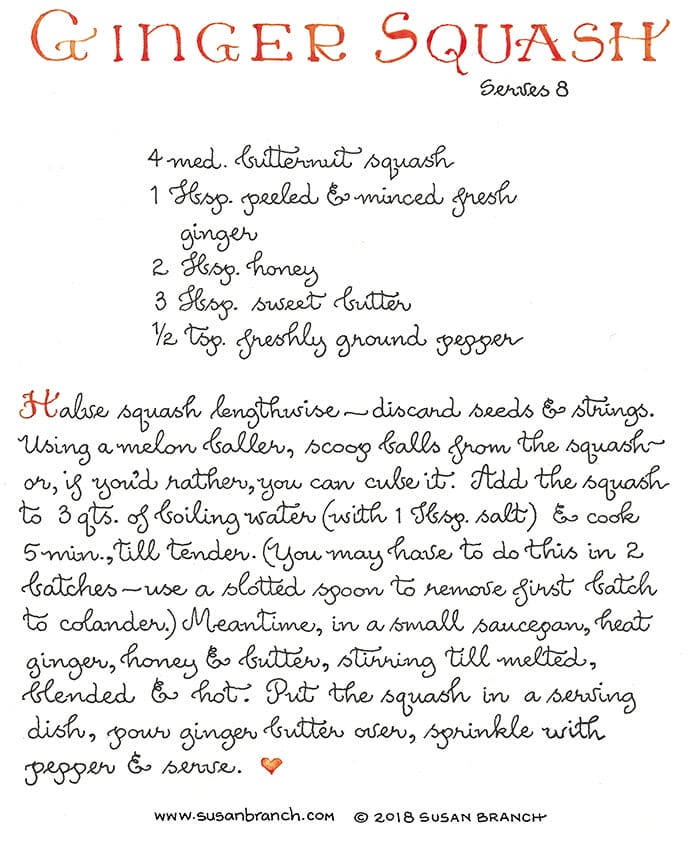 GINGER SQUASH
Serves 8
4 med. butternut squash
1 Tbsp. peeled & minced fresh
ginger
2 Tbsp. honey
3 Tbsp. sweet butter
½ tsp. freshly ground pepper
Halve squash lengthwise – discard seeds & strings.
Using a melon baller, scoop balls from the squash –
or, if you'd rather, you can cube it. Add the squash
to 3 qts. of boiling water (with 1 Tbsp. salt) & cook
5 min., till tender. (You may have to do this in 2
batches – use a slotted spoon to remove first batch
to colander.) Meantime, in a small saucepan, heat
ginger, honey & butter, stirring till melted,
blended & hot. Put the squash in a serving
dish, pour ginger butter over, sprinkle with
pepper & serve.
www.susanbranch.com © 2018 SUSAN BRANCH